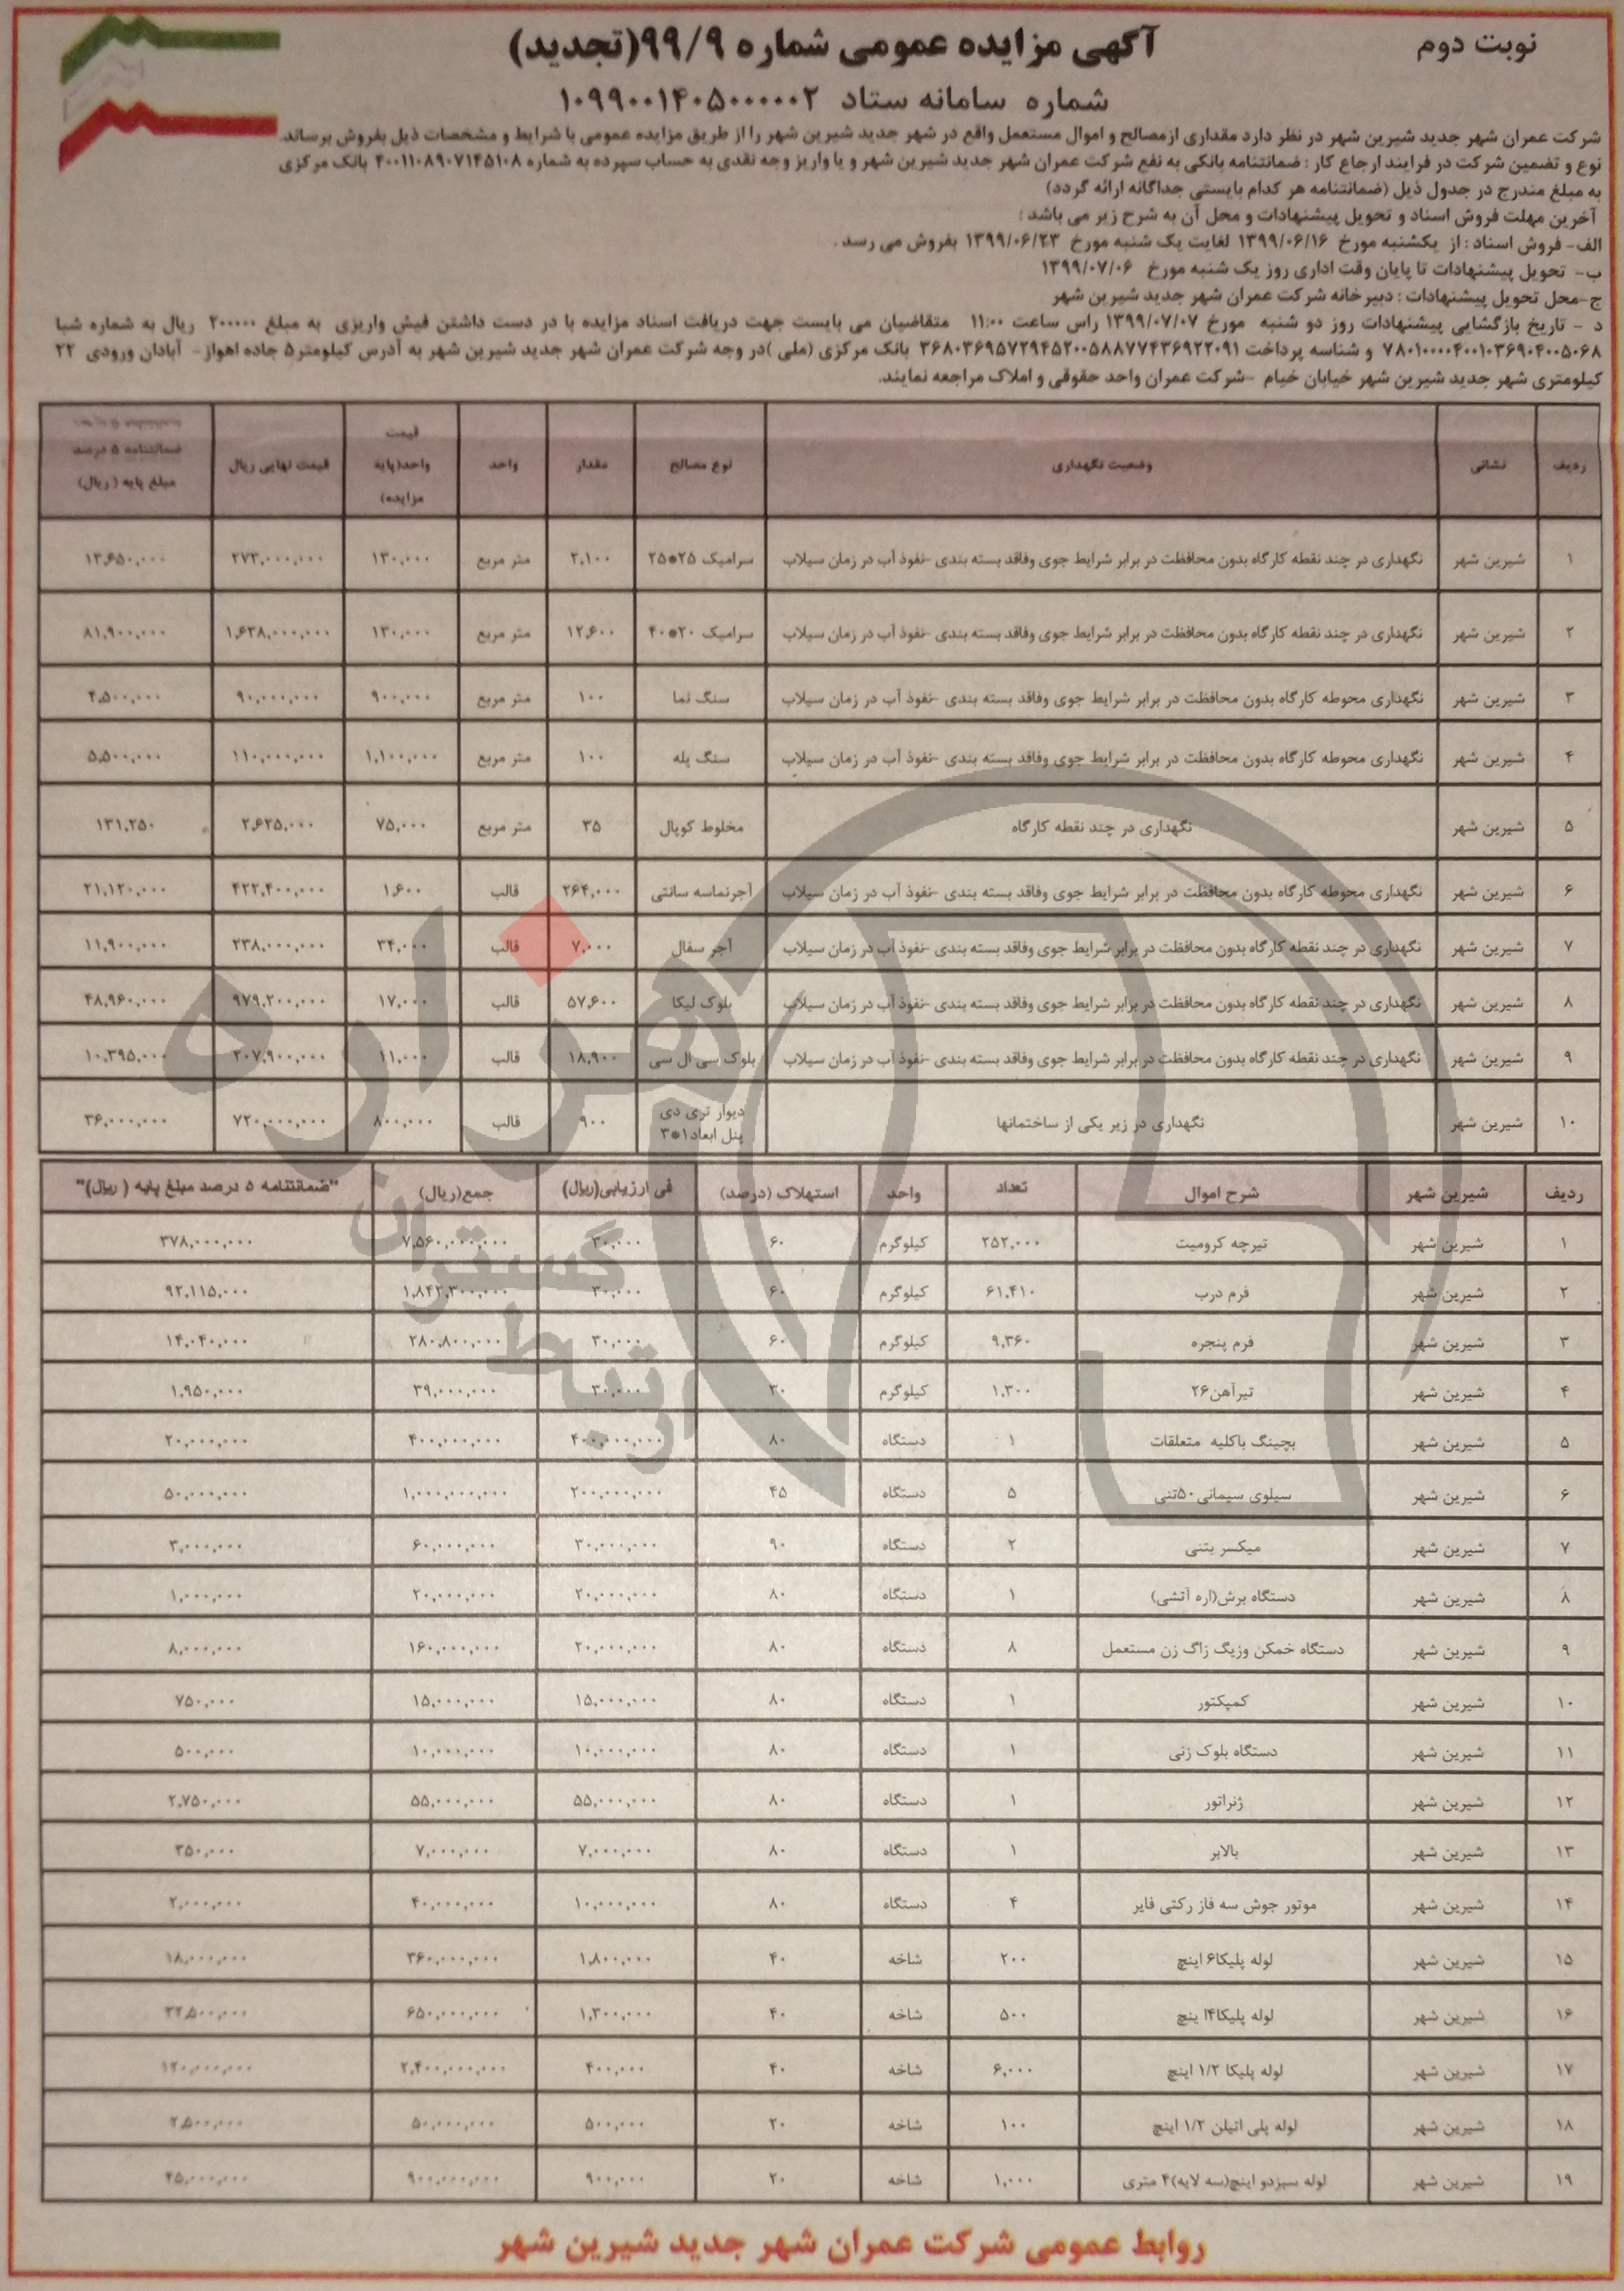 نوبت دوم
آگهی مزایده عمومی شماره ۹۹/۹(تجدید)
شماره سامانه ستاد ۱۰۹۹۰۰۱۴۰۵۰۰۰۰۰۲
شرکت عمران شهر جدید شیرین شهر در نظر دارد مقداری ازمصالح و اموال مستعمل واقع در شهر جدید شیرین شهر را از طریق مزایده عمومی با شرایط و مشخصات ذیل بفروش برساند.
نوع و تضمین شرکت در فرایند ارجاع کار : ضمانتنامه بانکی به نفع شرکت عمران شهر جدید شیرین شهر و یا واریز وجه نقدی به حساب سپرده به شماره ۴۰۰۱۱۰۸۹۰۷۱۴۵۱۰۸ بانک مرکزی
به مبلغ مندرج در جدول ذیل (ضمانتنامه هر کدام بایستی جداگانه ارائه گردد)
آخرین مهلت فروش اسناد و تحویل پیشنهادات و محل آن به شرح زیر می باشد :
الف- فروش اسناد : از یکشنبه مورخ ۱۳۹۹/۰۶/۱۶ لغایت یک شنبه مورخ ۱۳۹۹/۰۶/۲۳ بفروش می رسد .
ب- تحویل پیشنهادات تا پایان وقت اداری روز یک شنبه مورخ ۱۳۹۹/۰۷/۰۶
ج-محل تحویل پیشنهادات : دبیرخانه شرکت عمران شهر جدید شیرین شهر
د - تاریخ بازگشایی پیشنهادات روز دو شنبه مورخ ۱۳۹۹/۰۷/۰۷ راس ساعت ۱۱:۰۰ متقاضیان می بایست جهت دریافت اسناد مزایده با در دست داشتن فیش واریزی به مبلغ ۲۰۰۰۰۰ ریال به شماره شبا
۷۸۰۱۰۰۰۰۴۰۰۱۰۳۶۹۰۴۰۰۵۰۶۸ و شناسه پرداخت ۳۶۸۰۳۶۹۵۷۲۹۴۵۲۰۰۵۸۸۷۷۴۳۶۹۲۲۰۹۱ بانک مرکزی (ملی )در وجه شرکت عمران شهر جدید شیرین شهر به آدرس کیلومتر۵ جاده اهواز- آبادان ورودی ۲۲
کیلومتری شهر جدید شیرین شهر خیابان خیام -شرکت عمران واحد حقوقی و املاک مراجعه نمایند.
ردیف نشانی وضعیت نگهداری نوع مصالح مقدار واحد قیمت واحد(پایه مزایده) قیمت نهایی ریال ضمانتنامه ۵ درصد مبلغ پایه ( ریال)
۱ شیرین شهر نگهداری در چند نقطه کارگاه بدون محافظت در برابر شرایط جوی وفاقد بسته بندی -نفوذ آب در زمان سیلاب سرامیک ۲۵*۲۵ ۲,۱۰۰ متر مربع ۱۳۰,۰۰۰ ۲۷۳,۰۰۰,۰۰۰ ۱۳,۶۵۰,۰۰۰
۲ شیرین شهر نگهداری در چند نقطه کارگاه بدون محافظت در برابر شرایط جوی وفاقد بسته بندی -نفوذ آب در زمان سیلاب سرامیک ۲۰*۴۰ ۱۲,۶۰۰ متر مربع ۱۳۰,۰۰۰ ۱,۶۳۸,۰۰۰,۰۰۰ ۸۱,۹۰۰,۰۰۰
۳ شیرین شهر نگهداری محوطه کارگاه بدون محافظت در برابر شرایط جوی وفاقد بسته بندی -نفوذ آب در زمان سیلاب سنگ نما ۱۰۰ متر مربع ۹۰۰,۰۰۰ ۹۰,۰۰۰,۰۰۰ ۴,۵۰۰,۰۰۰
۴ شیرین شهر نگهداری محوطه کارگاه بدون محافظت در برابر شرایط جوی وفاقد بسته بندی -نفوذ آب در زمان سیلاب سنگ پله ۱۰۰ متر مربع ۱,۱۰۰,۰۰۰ ۱۱۰,۰۰۰,۰۰۰ ۵,۵۰۰,۰۰۰
۵ شیرین شهر نگهداری در چند نقطه کارگاه مخلوط کوپال ۳۵ متر مربع ۷۵,۰۰۰ ۲,۶۲۵,۰۰۰ ۱۳۱,۲۵۰
۶ شیرین شهر نگهداری محوطه کارگاه بدون محافظت در برابر شرایط جوی وفاقد بسته بندی -نفوذ آب در زمان سیلاب آجرنماسه سانتی ۲۶۴,۰۰۰ قالب ۱,۶۰۰ ۴۲۲,۴۰۰,۰۰۰ ۲۱,۱۲۰,۰۰۰
۷ شیرین شهر نگهداری در چند نقطه کارگاه بدون محافظت در برابر شرایط جوی وفاقد بسته بندی -نفوذ آب در زمان سیلاب آجر سفال ۷,۰۰۰ قالب ۳۴,۰۰۰ ۲۳۸,۰۰۰,۰۰۰ ۱۱,۹۰۰,۰۰۰
۸ شیرین شهر نگهداری در چند نقطه کارگاه بدون محافظت در برابر شرایط جوی وفاقد بسته بندی -نفوذ آب در زمان سیلاب بلوک لیکا ۵۷,۶۰۰ قالب ۱۷,۰۰۰ ۹۷۹,۲۰۰,۰۰۰ ۴۸,۹۶۰,۰۰۰
۹ شیرین شهر نگهداری در چند نقطه کارگاه بدون محافظت در برابر شرایط جوی وفاقد بسته بندی -نفوذ آب در زمان سیلاب بلوک سی ال سی ۱۸,۹۰۰ قالب ۱۱,۰۰۰ ۲۰۷,۹۰۰,۰۰۰ ۱۰,۳۹۵,۰۰۰
۱۰ شیرین شهر نگهداری در زیر یکی از ساختمانها دیوار تری دی پنل ابعاد۱*۳ ۹۰۰ قالب ۸۰۰,۰۰۰ ۷۲۰,۰۰۰,۰۰۰ ۳۶,۰۰۰,۰۰۰
ردیف شیرین شهر شرح اموال تعداد واحد استهلاک (درصد) فی ارزیابی(ریال) جمع(ریال) "ضمانتنامه ۵ درصد مبلغ پایه ( ریال)"
۱ شیرین شهر تیرچه کرومیت ۲۵۲,۰۰۰ کیلوگرم ۶۰ ۳۰,۰۰۰ ۷,۵۶۰,۰۰۰,۰۰۰ ۳۷۸,۰۰۰,۰۰۰
۲ شیرین شهر فرم درب ۶۱,۴۱۰ کیلوگرم ۶۰ ۳۰,۰۰۰ ۱,۸۴۲,۳۰۰,۰۰۰ ۹۲,۱۱۵,۰۰۰
۳ شیرین شهر فرم پنجره ۹,۳۶۰ کیلوگرم ۶۰ ۳۰,۰۰۰ ۲۸۰,۸۰۰,۰۰۰ ۱۴,۰۴۰,۰۰۰
۴ شیرین شهر تیرآهن۲۶ ۱,۳۰۰ کیلوگرم ۳۰ ۳۰,۰۰۰ ۳۹,۰۰۰,۰۰۰ ۱,۹۵۰,۰۰۰
۵ شیرین شهر بچینگ باکلیه متعلقات ۱ دستگاه ۸۰ ۴۰۰,۰۰۰,۰۰۰ ۴۰۰,۰۰۰,۰۰۰ ۲۰,۰۰۰,۰۰۰
۶ شیرین شهر سیلوی سیمانی۵۰تنی ۵ دستگاه ۴۵ ۲۰۰,۰۰۰,۰۰۰ ۱,۰۰۰,۰۰۰,۰۰۰ ۵۰,۰۰۰,۰۰۰
۷ شیرین شهر میکسر بتنی ۲ دستگاه ۹۰ ۳۰,۰۰۰,۰۰۰ ۶۰,۰۰۰,۰۰۰ ۳,۰۰۰,۰۰۰
۸ شیرین شهر دستگاه برش(اره آتشی) ۱ دستگاه ۸۰ ۲۰,۰۰۰,۰۰۰ ۲۰,۰۰۰,۰۰۰ ۱,۰۰۰,۰۰۰
۹ شیرین شهر دستگاه خمکن وزیگ زاگ زن مستعمل ۸ دستگاه ۸۰ ۲۰,۰۰۰,۰۰۰ ۱۶۰,۰۰۰,۰۰۰ ۸,۰۰۰,۰۰۰
۱۰ شیرین شهر کمپکتور ۱ دستگاه ۸۰ ۱۵,۰۰۰,۰۰۰ ۱۵,۰۰۰,۰۰۰ ۷۵۰,۰۰۰
۱۱ شیرین شهر دستگاه بلوک زنی ۱ دستگاه ۸۰ ۱۰,۰۰۰,۰۰۰ ۱۰,۰۰۰,۰۰۰ ۵۰۰,۰۰۰
۱۲ شیرین شهر ژنراتور ۱ دستگاه ۸۰ ۵۵,۰۰۰,۰۰۰ ۵۵,۰۰۰,۰۰۰ ۲,۷۵۰,۰۰۰
۱۳ شیرین شهر بالابر ۱ دستگاه ۸۰ ۷,۰۰۰,۰۰۰ ۷,۰۰۰,۰۰۰ ۳۵۰,۰۰۰
۱۴ شیرین شهر موتور جوش سه فاز رکتی فایر ۴ دستگاه ۸۰ ۱۰,۰۰۰,۰۰۰ ۴۰,۰۰۰,۰۰۰ ۲,۰۰۰,۰۰۰
۱۵ شیرین شهر لوله پلیکا۶ اینچ ۲۰۰ شاخه ۴۰ ۱,۸۰۰,۰۰۰ ۳۶۰,۰۰۰,۰۰۰ ۱۸,۰۰۰,۰۰۰
۱۶ شیرین شهر لوله پلیکا۴ا ینچ ۵۰۰ شاخه ۴۰ ۱,۳۰۰,۰۰۰ ۶۵۰,۰۰۰,۰۰۰ ۳۲,۵۰۰,۰۰۰
۱۷ شیرین شهر لوله پلیکا ۱/۲ اینچ ۶,۰۰۰ شاخه ۴۰ ۴۰۰,۰۰۰ ۲,۴۰۰,۰۰۰,۰۰۰ ۱۲۰,۰۰۰,۰۰۰
۱۸ شیرین شهر لوله پلی اتیلن ۱/۲ اینچ ۱۰۰ شاخه ۲۰ ۵۰۰,۰۰۰ ۵۰,۰۰۰,۰۰۰ ۲,۵۰۰,۰۰۰
۱۹ شیرین شهر لوله سبزدو اینچ(سه لایه)۴ متری ۱,۰۰۰ شاخه ۲۰ ۹۰۰,۰۰۰ ۹۰۰,۰۰۰,۰۰۰ ۴۵,۰۰۰,۰۰۰
روابط عمومی شرکت عمران شهر جدید شیرین شهر
هزاره
گستران
ارتباط